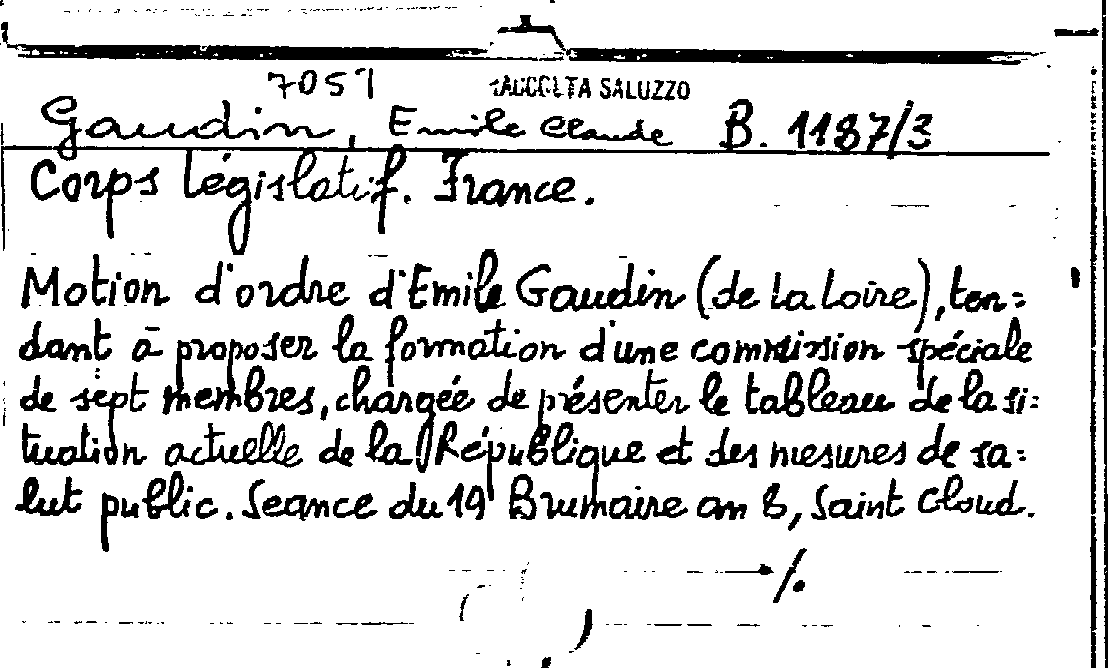 7051 RACCOLTA SALUZZO
Gaudin, Emile Claude B. 1187/3
Corps Législatif. France.
Motion d'ordre d'Emile Gaudin (de la Loire), ten=
dant à proposer la formation d'une commission spéciale
de sept membres, chargée de présenter le tableau de la si=
tuation actuelle de la République et des mesures de sa=
lut public. Seance du 19 Brumaire an 8, Saint Cloud.
./.